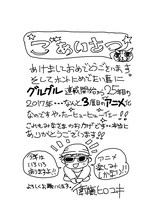 ごあいさつ
あけましておめでとうございます
そしてホントにめでたい事に
グルグル連載開始から25年目の
2017年・・・なんと3度目のアニメ化
なのですやったーヒューヒューだー!!
これもみなさまのおかげです・・本当に
ありがとうございます
今年は
いろいろ
あります
アニメ
楽しみ
よろしくお願いします
衛藤ヒロユキ